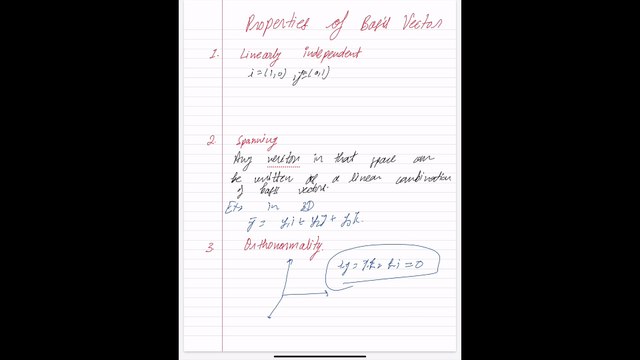 Properties of Basis Vector
1. Linearly independent
i = (1,0) , j = (0,1)
2. Spanning
Any vector in that space can
be written as a linear combination
of basis vectors.
in 3D
y⃗ = y₁i + y₂j + y₃k.
3. Orthonormality.
= 0